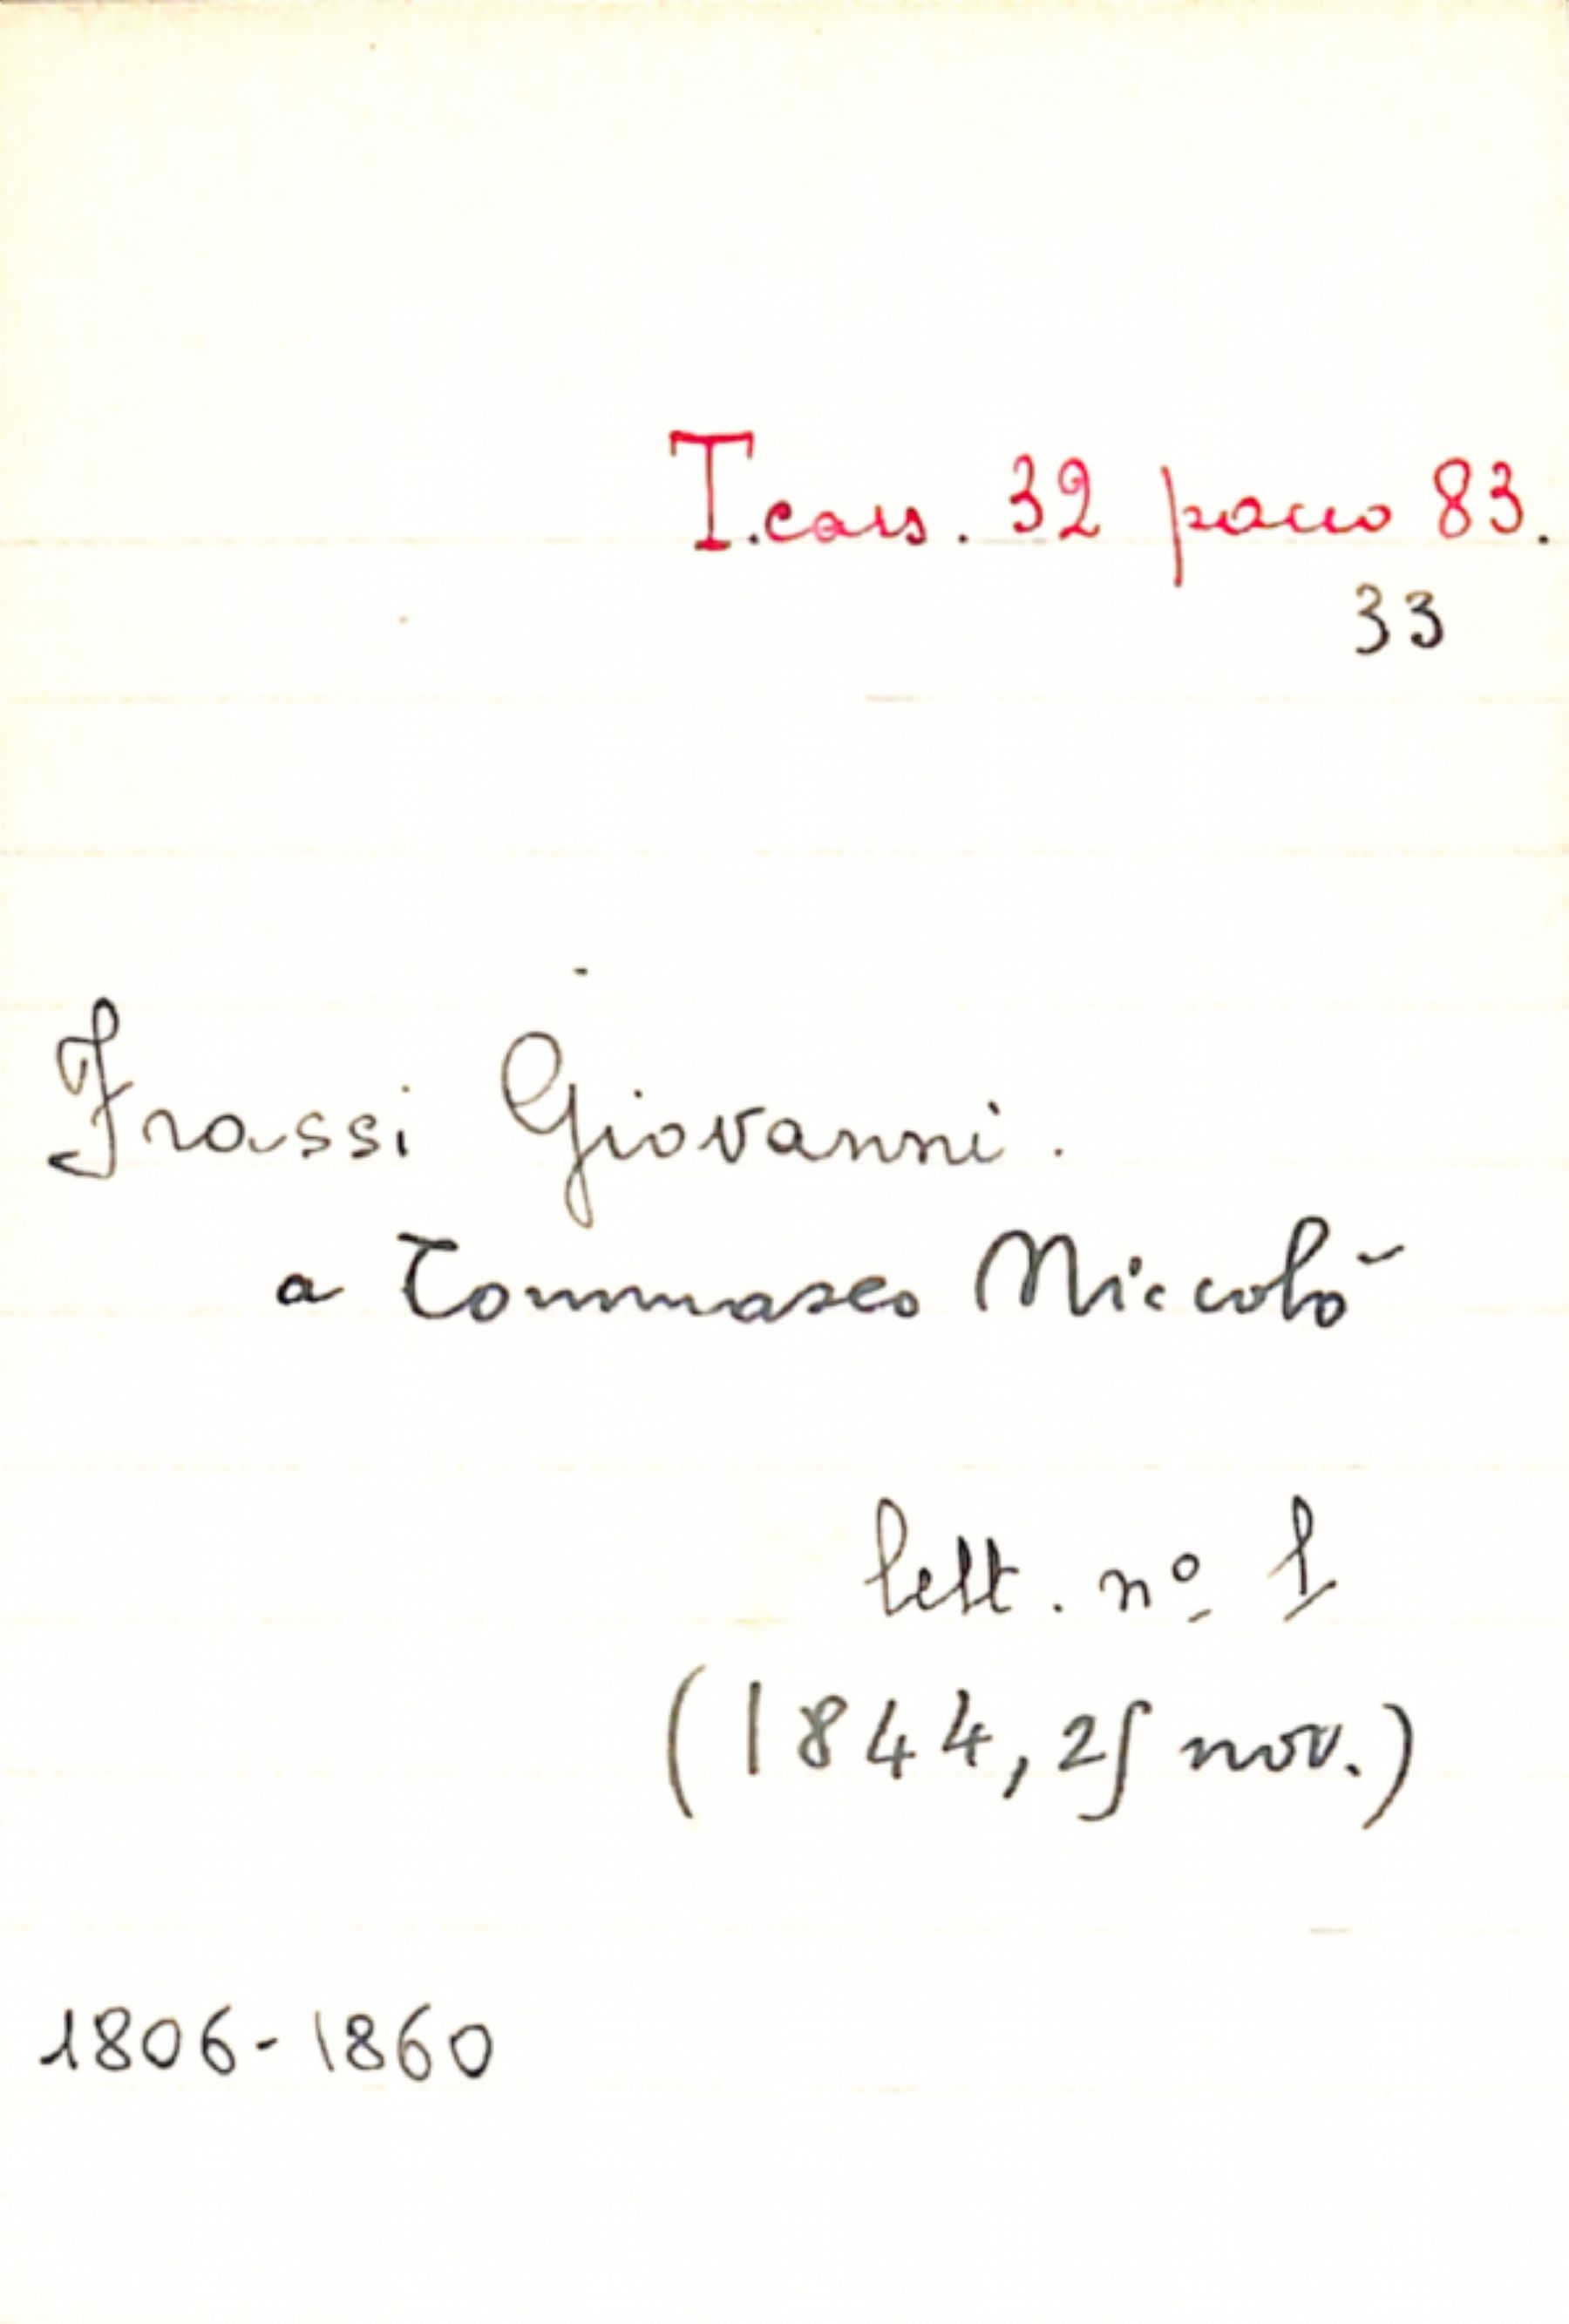 T. cass. 32 pacco 83.
33
Frassi Giovanni.
a Tommaseo Niccolò
lett. nº 1
(1844, 25 nov.)
1806-1860